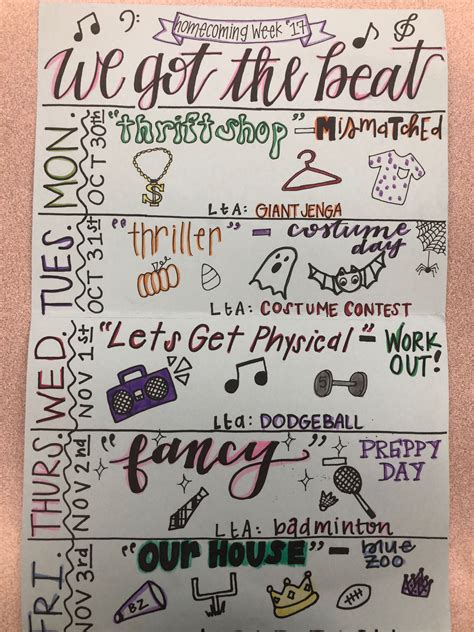 homecoming Week '17
We got the beat
MON.
OCT 30th
"thriftshop" - MismaTched
$
LtA: GIANT JENGA
TUES.
OCT 31st
"thriller" - costume day
LtA: COSTUME CONTEST
WED.
NOV 1st
"Lets Get Physical" - WORK OUT!
LtA: DODGEBALL
THURS.
NOV 2nd
"fancy" - PREPPY DAY
LtA: badminton
FRI.
NOV 3rd
"OUR HOUSE" - blue zoo
BZ